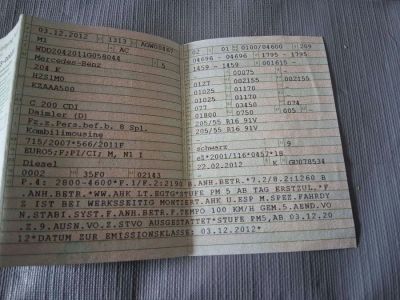 03.12.2012 1313 AGW00467
M1 AC
WDD2042011G058044 5
Mercedes-Benz
204 K
H2S1M0
KZAAA500
C 200 CDI
Daimler (D)
Fz.z.Pers.bef.b. 8 Spl.
Kombilimousine
715/2007*566/2011F
EURO5;F;PI/CI; M, N1 I
Diesel
0002 35F0 02143
02 01 0100/04600 209
04696 - 04696 1795 - 1795
1459 - 1459 001615
00075
0127 002155 002155
01025 01025
077 03450 074
01800 0750 605
205/55 R16 91V
205/55 R16 91V
schwarz 9
e1*2001/116*0457*18
22.02.2012 K GU078534
P.4: 2800-4600*F.1/F.2:2190 B.ANH.BETR.*7.2/8.2:1260 B
.ANH.BETR.*WW.AHK LT.EGTG*STUFE PM 5 AB TAG ERSTZUL.*F
Z IST BEI WERKSSEITIG MONTIERT.AHK U.ESP M.SPEZ.FAHRDY
N.STABI.SYST.F.ANH.BETR.F.TEMPO 100 KM/H GEM.5.AEND.VO
.Z.9.AUSN.VO.Z.STVO AUSGESTATTET*STUFE PM5,AB 03.12.20
12*DATUM ZUR EMISSIONKLASSE: 03.12.2012*